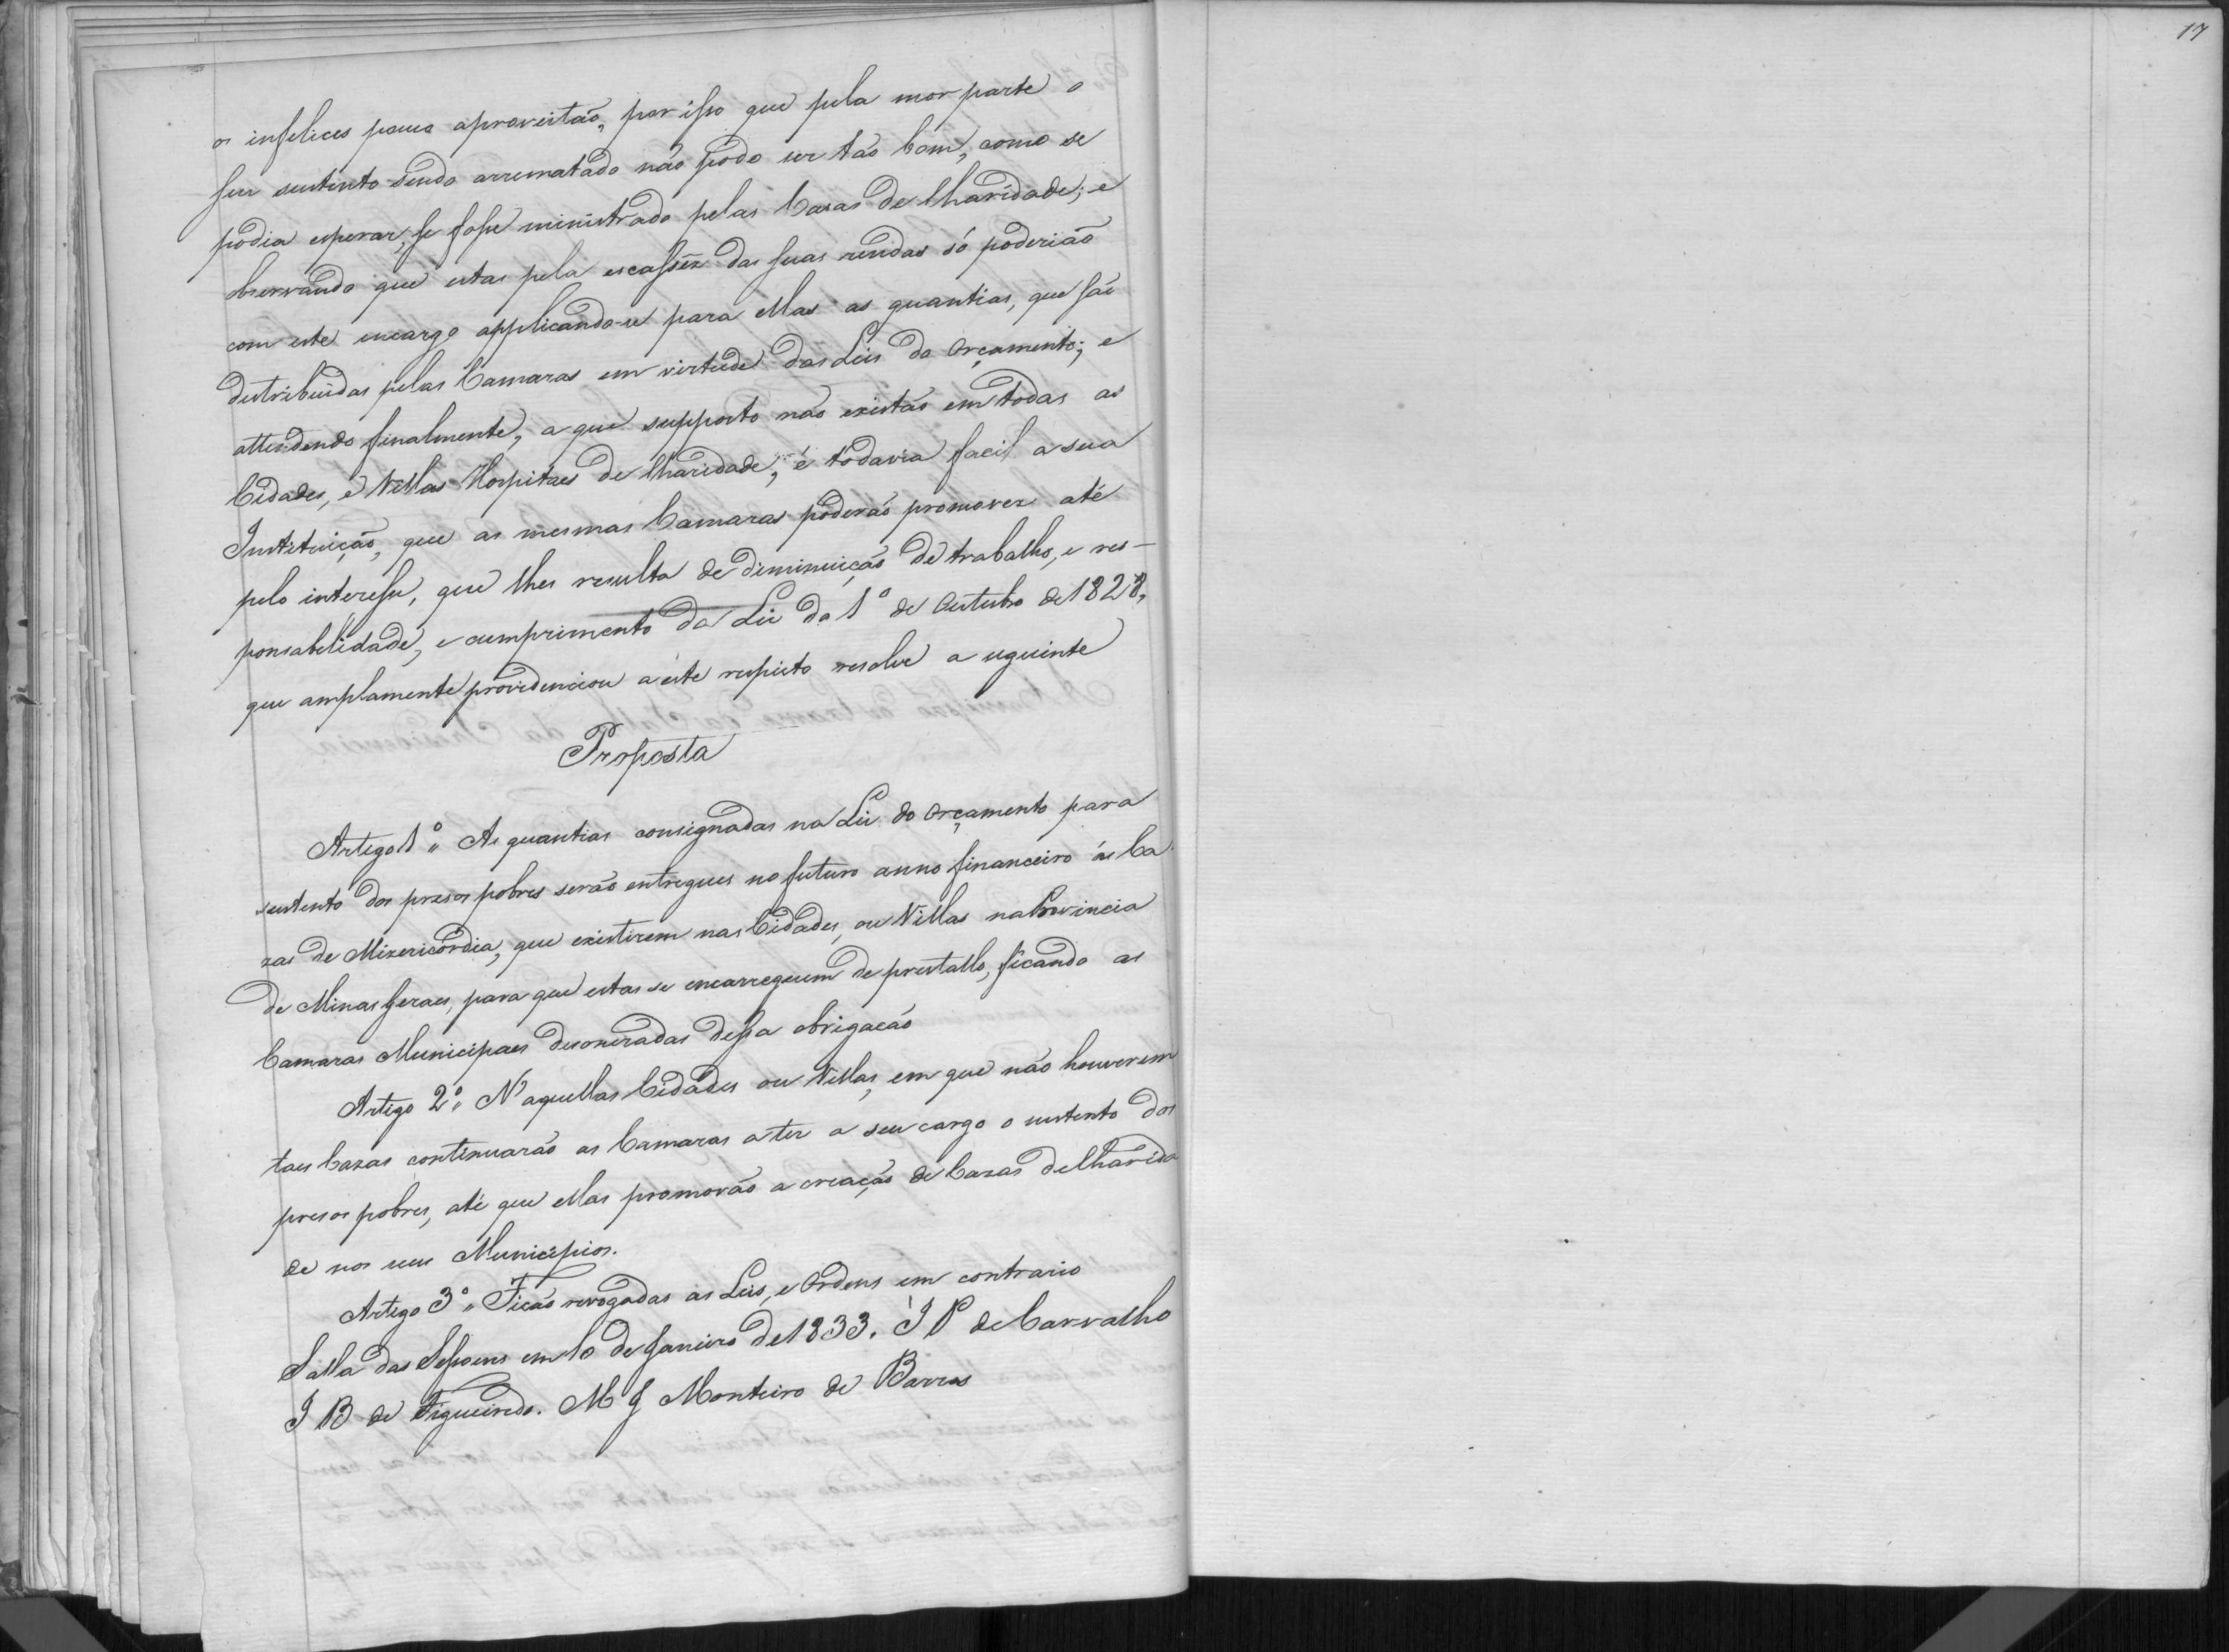 os infelices pouco aproveitão, por isso que pela mor parte o
seu sustento sendo arrematado não pode ser tão bom, como se
podia esperar, se fosse ministrado pelas Casas de Charidade; e
observando que estas pela escassez das suas rendas só poderião
com este encargo applicando-se para ellas as quantias, que são
destribuidas pelas Camaras em virtude das Leis do Orçamento; e
attendendo finalmente, a que supposto não existão em todas as
Cidades, e Villas Hospitaes de Charidade, é todavia facil a sua
Instituição, que as mesmas Camaras poderão promover até
pelo interesse, que lhes resulta de diminuição de trabalho, e res-
ponsabelidade, e cumprimento da Lei do 1º de Outubro de 1828,
que amplamente providenciou a este respieto resolve a seguinte
Proposta
Artigo 1º As quantias consignadas na Lei do Orçamento para
sustento dos presos pobres serão entregues no futuro anno financeiro ás Ca
zas de Mizericordia, que existirem nas Cidades, ou Villas na Provincia
de Minas Geraes, para que estas se encarreguem de prestallo, ficando as
Camaras Municipaes desoneradas dessa obrigação
Artigo 2º N'aquellas Cidades ou Villas, em que não houverem
taes Cazas continuarão as Camaras a ter a seu cargo o sustento dos
presos pobres, até que ellas promovão a creação de Cazas de Charida
de nos seus Municipios.
Artigo 3º Ficão revogadas as Leis, e Ordens em contrario
Salla das Sessoens em 10 de Janeiro de 1833. J P de Carvalho
J B de Figueiredo. M J Monteiro de Barros
17